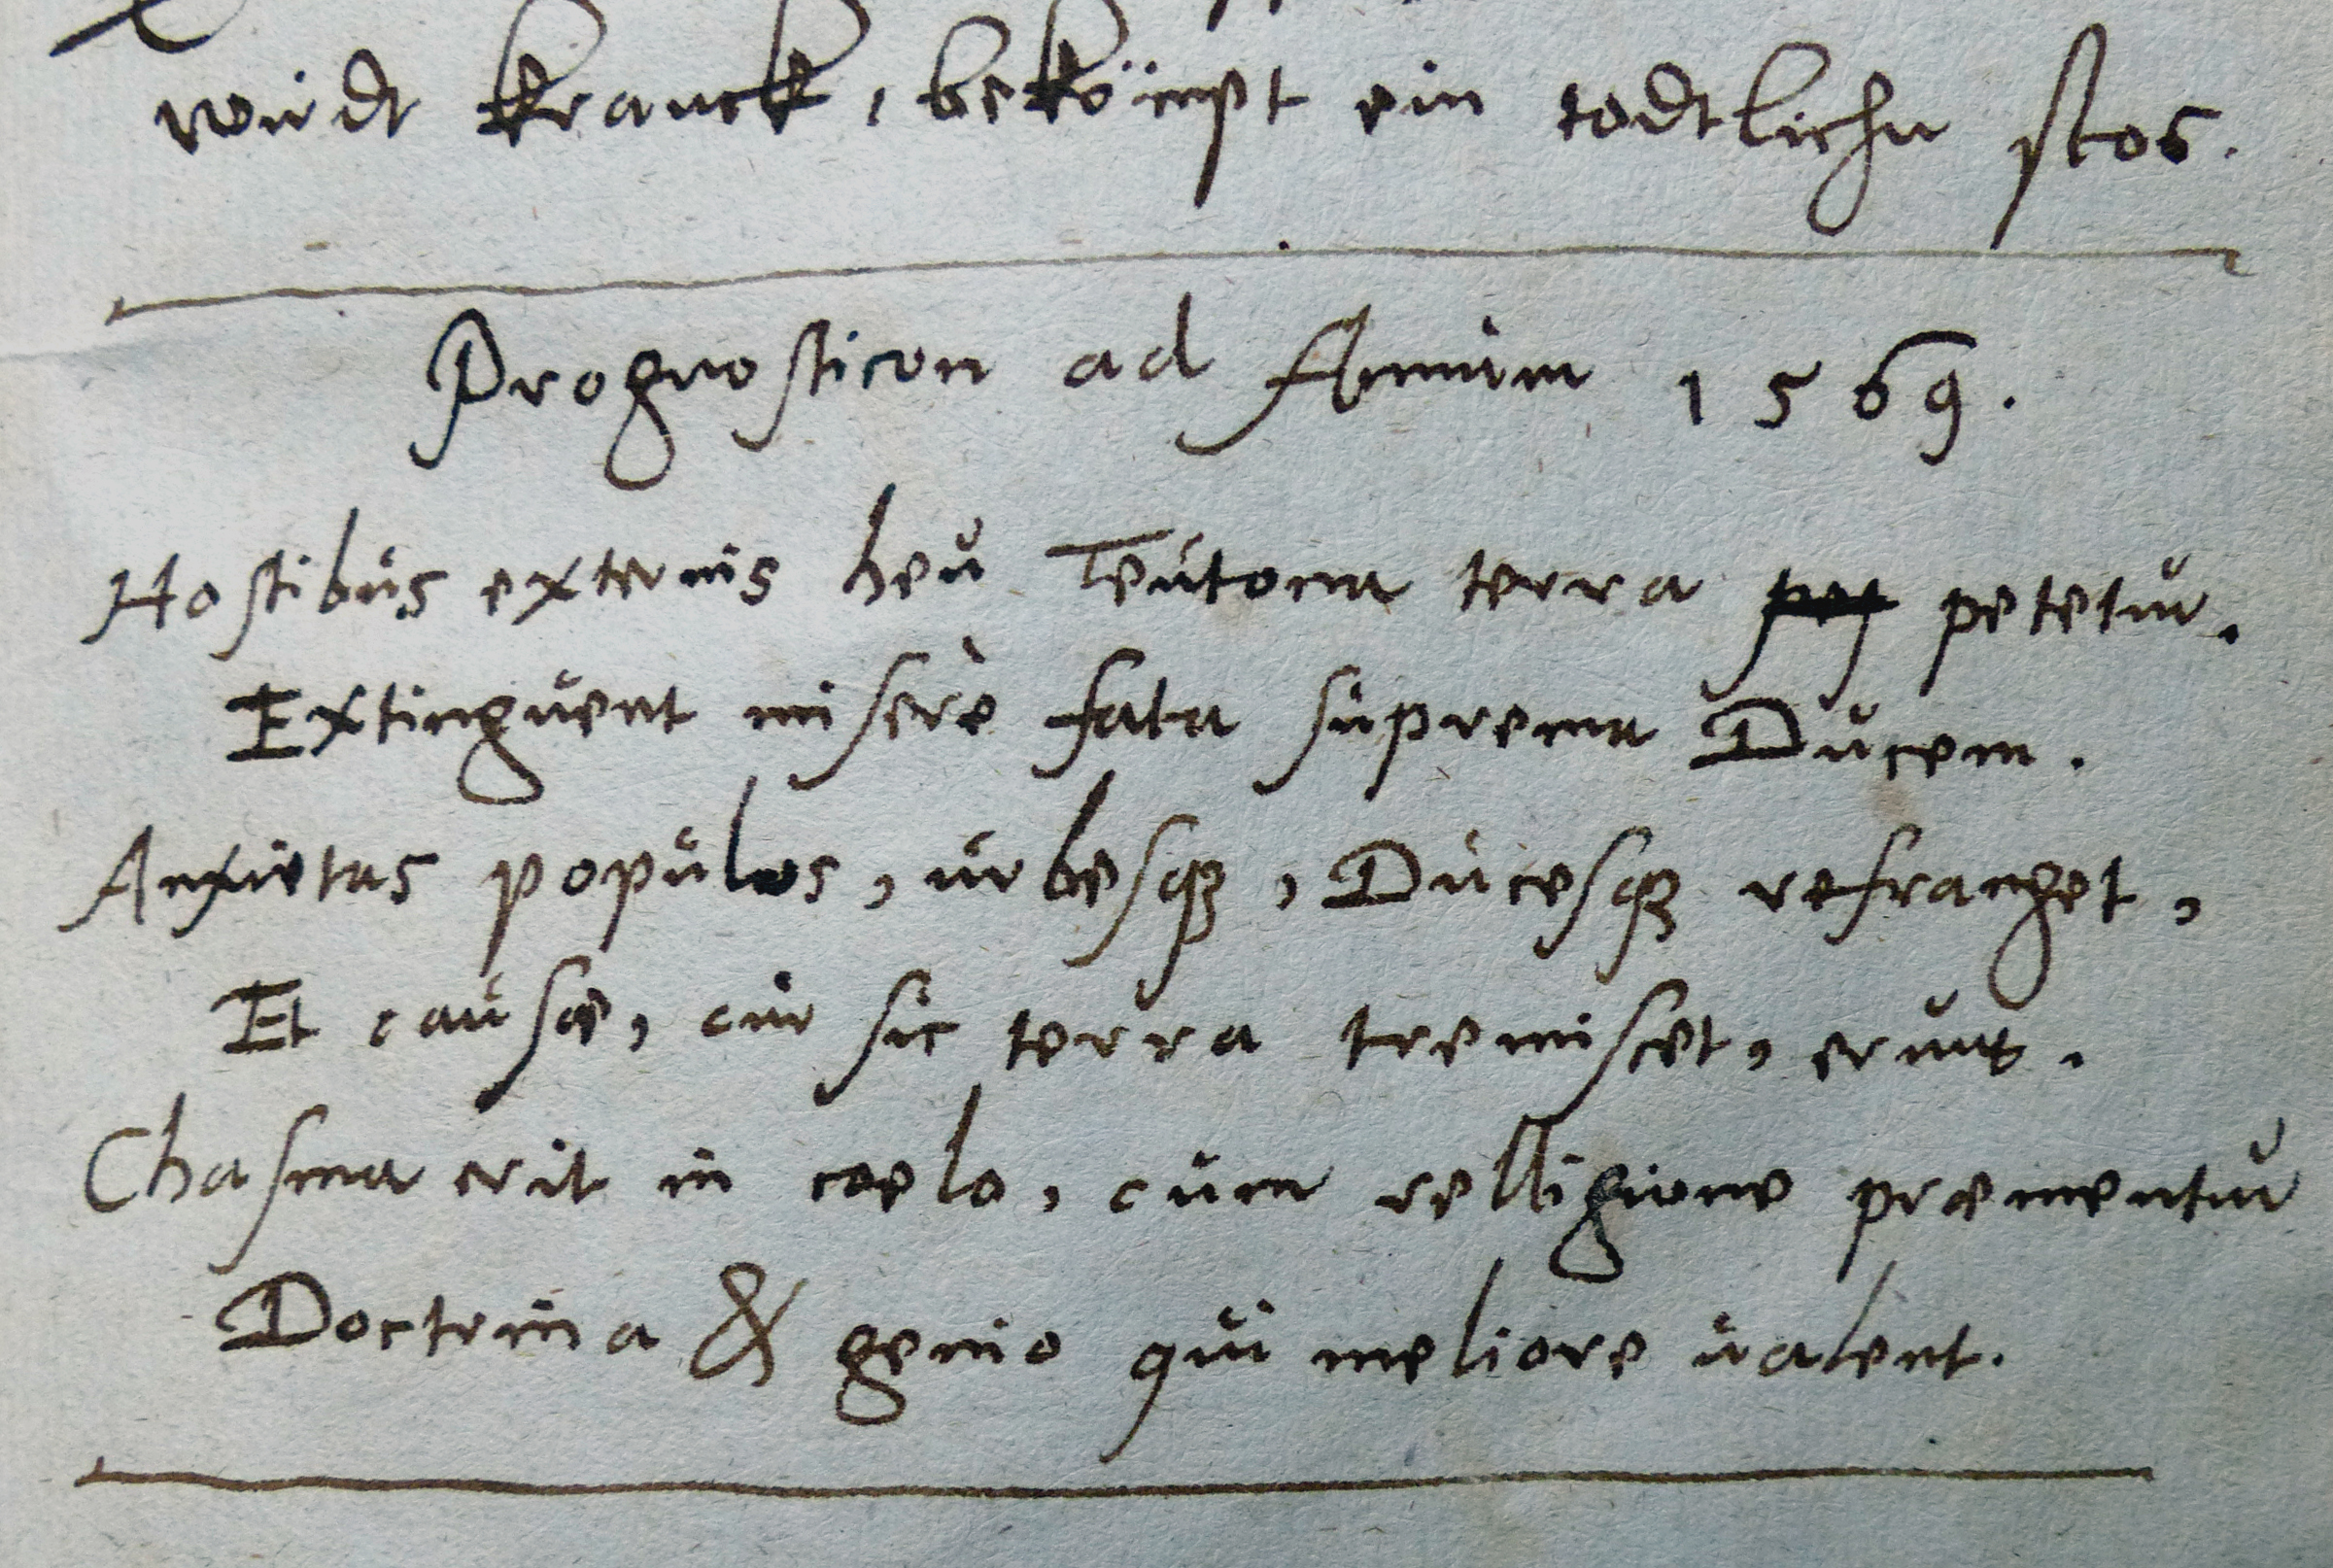 wirdt kranck, bekömpt ein todtlichn stos.
Prognosticon ad Annum 1569.
Hostibus externis heu Teutona terra petetur.
Extinguent miserè fata suprema Ducem.
Anxietas populos, urbesqꝫ, Ducesqꝫ refranget,
Et causæ, cur sic terra tremiscet, erunt.
Chasma erit in coelo, cum relligione præmentur
Doctrina & genio qui meliore ualent.